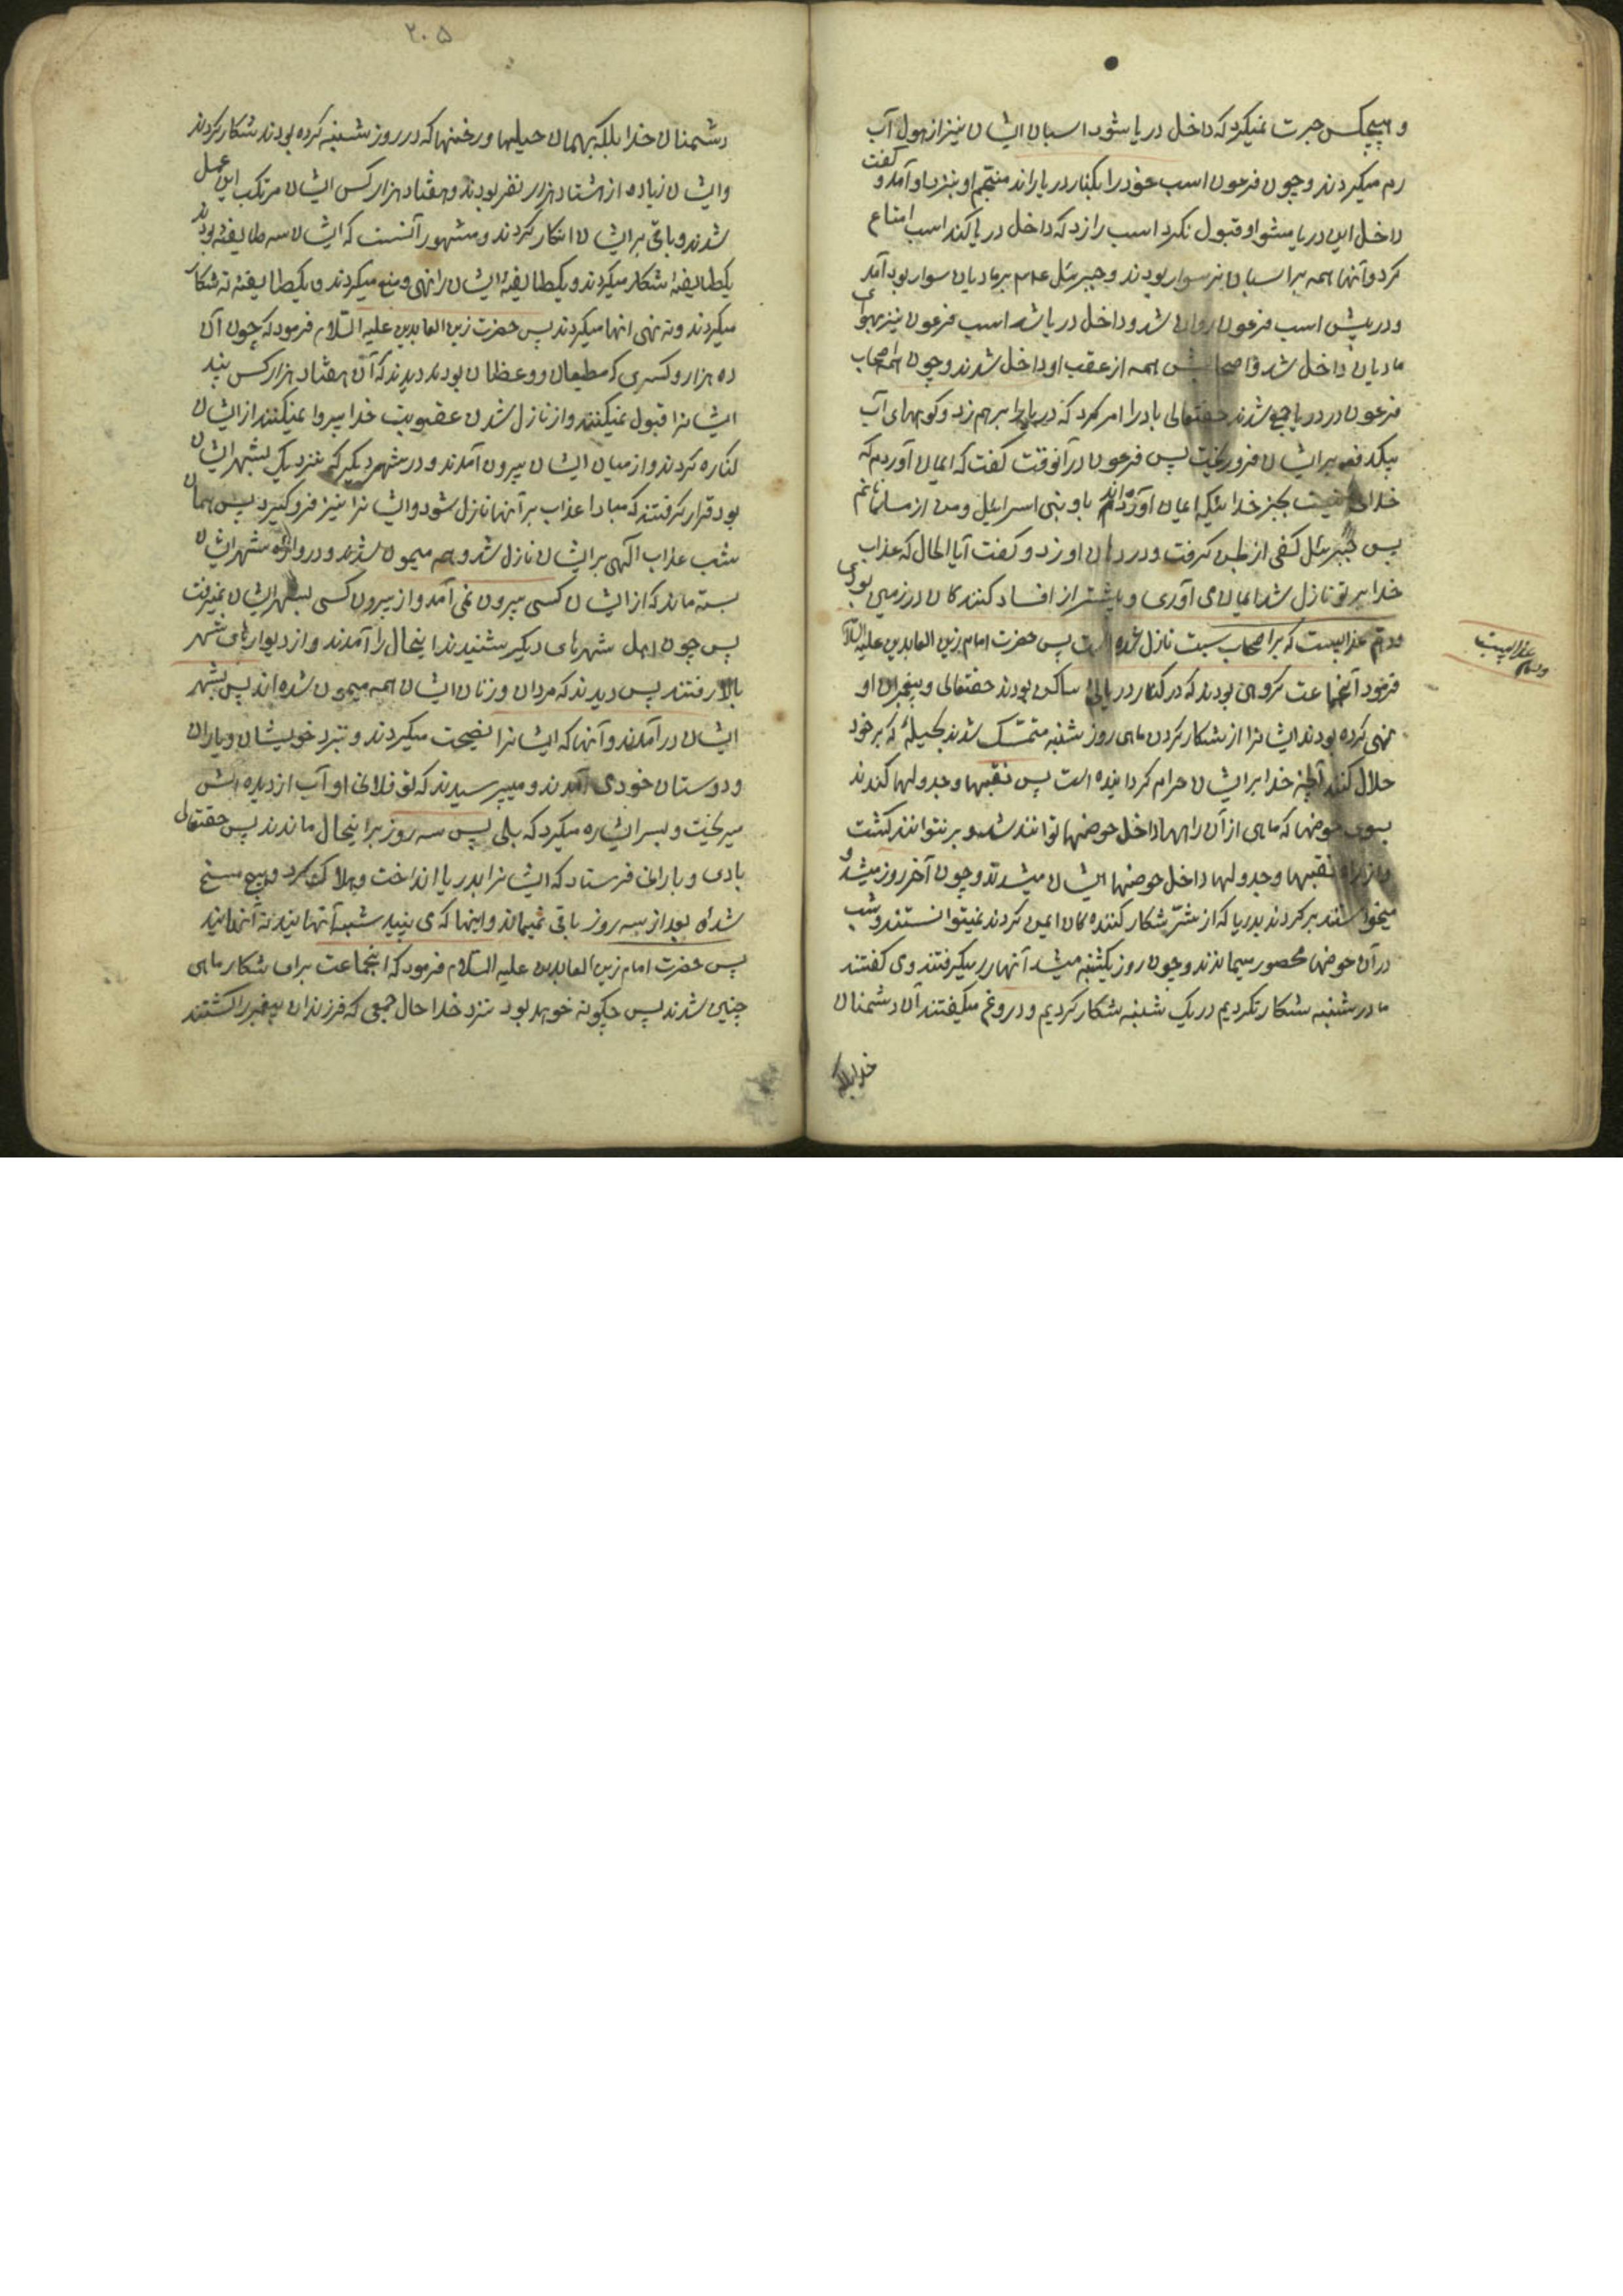 و هیچکس جرت نمیکرد که داخل دریا شود اسبان ایشان نیز از هول آب
رم میکردند و چون فرعون اسب خود را بکنار دریا راند منجم او بنزد او آمد و گفت
داخل این دریا مشو او قبول نکرد اسب را زد که داخل دریا کند اسب امتناع
کرد و آنها همه بر اسبان نر سوار بودند و جبرئیل ع م بر مادیان سوار بود آمد
و در پیش اسب فرعون روان شد و داخل دریا شد اسب فرعون نیز بهوای
مادیان داخل شد و اصحابش همه از عقب او داخل شدند و چون همه اصحاب
فرعون در دریا جمع شدند حقتعالی باد را امر کرد که دریا را بر هم زد و کوههای آب
بیکدفعه بر ایشان فرو ریخت پس فرعون در آنوقت گفت که ایمان آوردم که
خدای نیست بجز خدائیکه ایمان آورده‌اند باو بنی اسرائیل و من از مسلمانانم
پس جبرئیل کفی از طین گرفت و در دهان او زد و گفت آیا الحال که عذاب
خدا بر تو نازل شد ایمان می آوری و پیشتر از افساد کنندگان در زمین بودی
و دیم عذابیست که بر اصحاب سبت نازل شده است پس حضرت امام زین العابدین علیه السلام
فرمود آنجماعت گروهی بودند که در کنار دریائی ساکن بودند حقتعالی و پیغمبران او
نهی کرده بودند ایشانرا از شکار کردن ماهی روز شنبه متمسک شدند بحیلهٔ که بر خود
حلال کنند آنچه خدا بر ایشان حرام گردانیده است پس نقبها و جدولها کندند
بسوی حوضها که ماهی از آن راهها داخل حوضها توانند شد و بر نتوانند گشت
و از راه نقبها و جدولها داخل حوضهای ایشان میشدند و چون آخر روز میشد و
میخواستند برگردند بدریا که از شرّ شکار کننده‌گان ایمن گردند نمیتوانستند و شب
در آن حوضها محصور میماندند و چون روز یکشنبه میشد آنها را میگرفتند و می گفتند
ما در شنبه شکار نکردیم در یک شنبه شکار کردیم و دروغ میگفتند آن دشمنان
خدا بلکه
عذابیست
۲۰۵
دشمنان خدا بلکه بهمان حیلها و رخنها که در روز شنبه کرده بودند شکار کردند
و ایشان زیاده از هشتاد هزار نفر بودند و هفتاد هزار کس ایشان مرتکب این عمل
شدند و باقی بر ایشان انکار کردند و مشهور آنست که ایشان سه طایفه بودند
یکطایفهٔ شکار میکردند و یکطایفهٔ ایشان را نهی و منع میکردند و یکطایفهٔ نه شکار
میکردند و نه نهی انها میکردند پس حضرت زین العابدین علیه السلام فرمود که چون آن
ده هزار و کسری که مطیعان و وعظان بودند دیدند که آن هفتاد هزار کس پند
ایشانرا قبول نمیکنند و از نازل شدن عقوبت خدا پروا نمیکنند از ایشان
کناره کردند و از میان ایشان بیرون آمدند و در شهر دیگر که نزدیک بشهر ایشان
بود قرار گرفتند که مبادا عذاب بر آنها نازل شود و ایشانرا نیز فرو گیرد پس همان
شب عذاب الهی بر ایشان نازل شد و همه میمون شدند و دروازه شهر ایشان
بسته ماند که از ایشان کسی بیرون نمی آمد و از بیرون کسی بشهر ایشان نمیرفت
پس چون اهل شهرهای دیگر شنیدند اینحال را آمدند و از دیوارهای شهر
بالا رفتند پس دیدند که مردان و زنان ایشان همه میمون شده اند پس بشهر
ایشان در آمدند و آنها که ایشانرا نصیحت میکردند و نزد خویشان و یاران
و دوستان خود می آمدند و میپرسیدند که تو فلانی او آب از دیده اش
میریخت و بسر اشاره میکرد که بلی پس سه روز بر اینحال ماندند پس حقتعالی
بادی و بارانی فرستاد که ایشانرا بدریا انداخت و هلاک کرد و هیچ مسخ
شده بعد از سه روز باقی نمیماند و اینها که می بینید شبیه آنهایند نه آنهایند
پس حضرت امام زین العابدین علیه السلام فرمود که انجماعت برای شکار ماهی
چنین شدند پس چگونه خواهد بود نزد خدا حال جمعی که فرزندان پیغمبر را کشتند